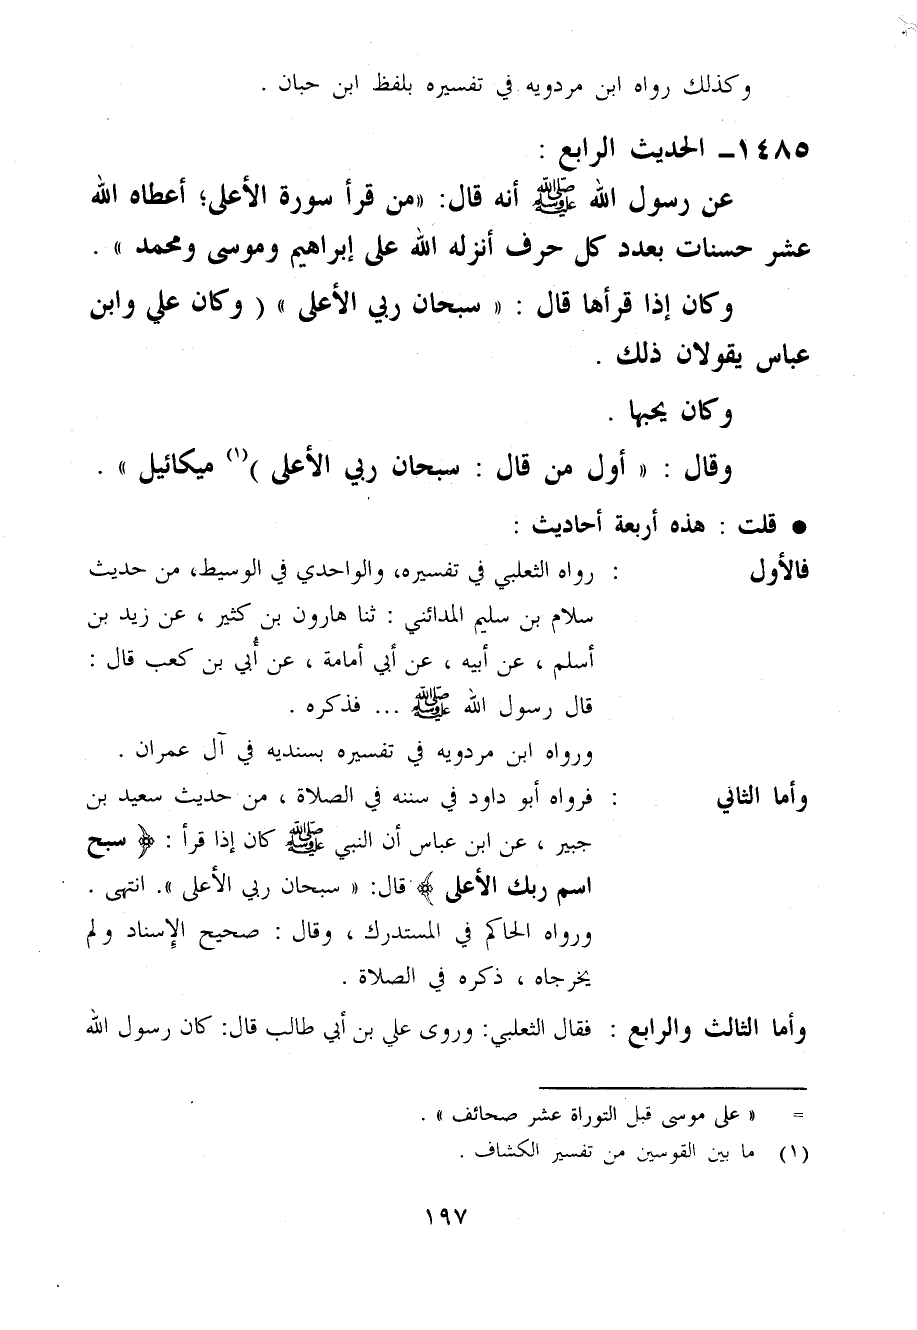 وكذلك رواه ابن مردويه في تفسيره بلفظ ابن حبان .
١٤٨٥ـ الحديث الرابع :
عن رسول الله ﷺ أنه قال: «من قرأ سورة الأعلى؛ أعطاه الله
عشر حسنات بعدد كل حرف أنزله الله على إبراهيم وموسى ومحمد » .
وكان إذا قرأها قال : « سبحان ربي الأعلى » ( وكان علي وابن
عباس يقولان ذلك .
وكان يحبها .
وقال : « أول من قال : سبحان ربي الأعلى )(١) ميكائيل » .
● قلت : هذه أربعة أحاديث :
فالأول : رواه الثعلبي في تفسيره، والواحدي في الوسيط، من حديث
سلام بن سليم المدائني : ثنا هارون بن كثير ، عن زيد بن
أسلم ، عن أبيه ، عن أبي أمامة ، عن أُبي بن كعب قال :
قال رسول الله ﷺ ... فذكره .
ورواه ابن مردويه في تفسيره بسنديه في آل عمران .
وأما الثاني : فرواه أبو داود في سننه في الصلاة ، من حديث سعيد بن
جبير ، عن ابن عباس أن النبي ﷺ كان إذا قرأ : ﴿ سبح
اسم ربك الأعلى ﴾ قال: « سبحان ربي الأعلى ». انتهى .
ورواه الحاكم في المستدرك ، وقال : صحيح الإسناد ولم
يخرجاه ، ذكره في الصلاة .
وأما الثالث والرابع : فقال الثعلبي: وروى علي بن أبي طالب قال: كان رسول الله
= « على موسى قبل التوراة عشر صحائف » .
(١) ما بين القوسين من تفسير الكشاف .
١٩٧